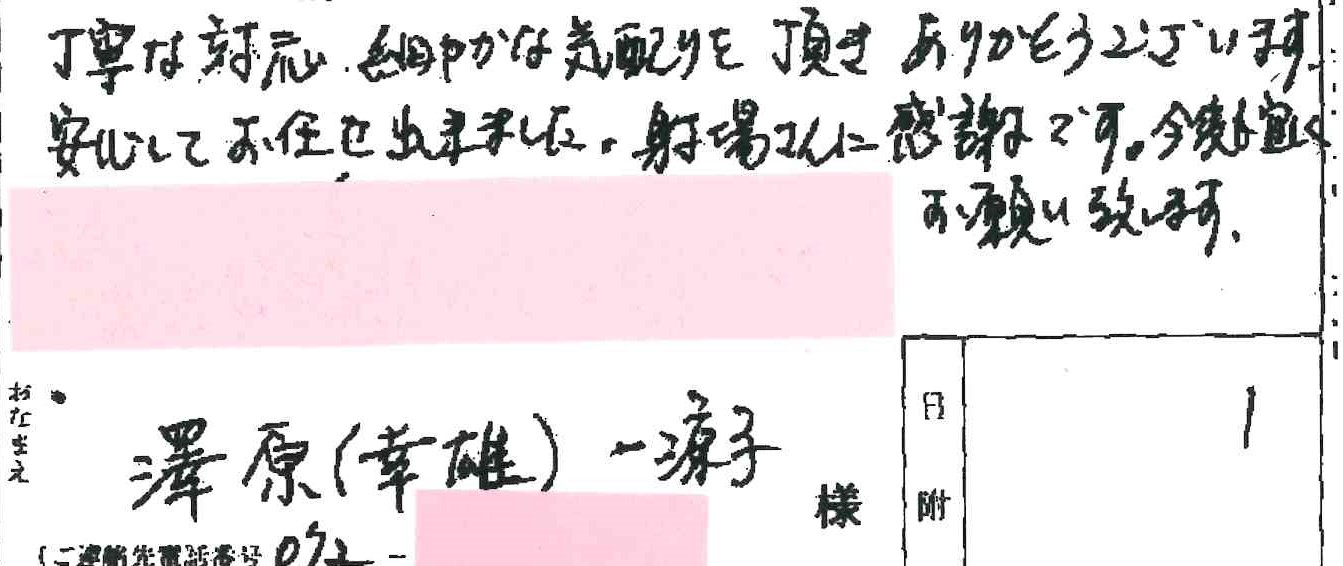 丁寧な対応、細やかな気配りを頂き ありがとうございます。
安心してお任せ出来ました。射場さんに感謝です。今後も宜しく
お願い致します。
おなまえ
澤原(幸雄) 一涼子 様
日附
1
(ご連絡先電話番号 072 -